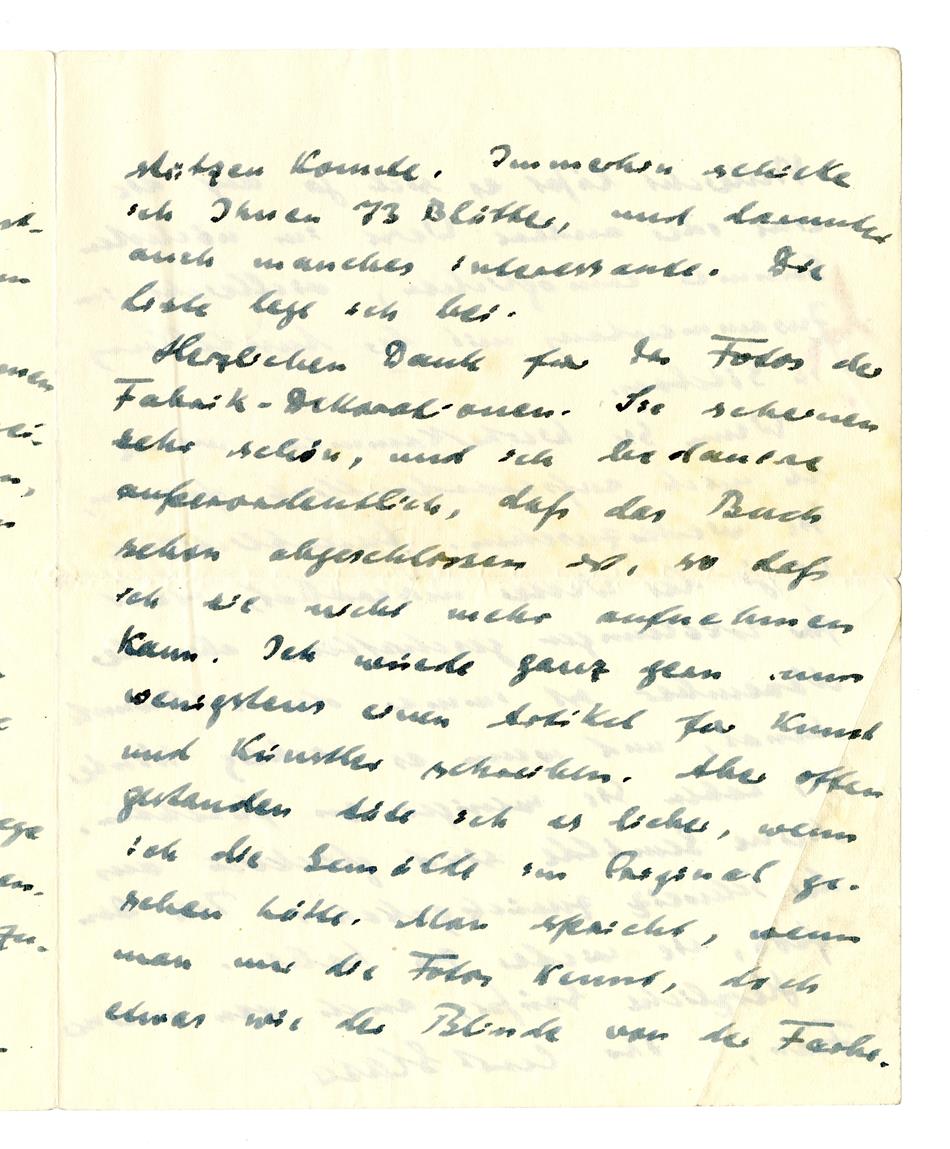 stützen konnte. Immerhin schicke
ich Ihnen 73 Blätter, und darunter
auch manches interessante. Die
Liste lege ich bei.
Herzlichen Dank für die Fotos der
Fabrik-Dekorationen. Sie scheinen
sehr schön, und ich bedaure
außerordentlich, daß das Buch
schon abgeschlossen ist, so daß
ich sie nicht mehr aufnehmen
kann. Ich würde ganz gern nun
wenigstens einen Artikel für Kunst
und Künstler schreiben. Aber offen
gestanden täte ich es lieber, wenn
ich die Gemälde im Original ge-
sehen hätte. Man spricht, wenn
man nur die Fotos kennt, doch
etwas wie der Blinde von der Farbe.